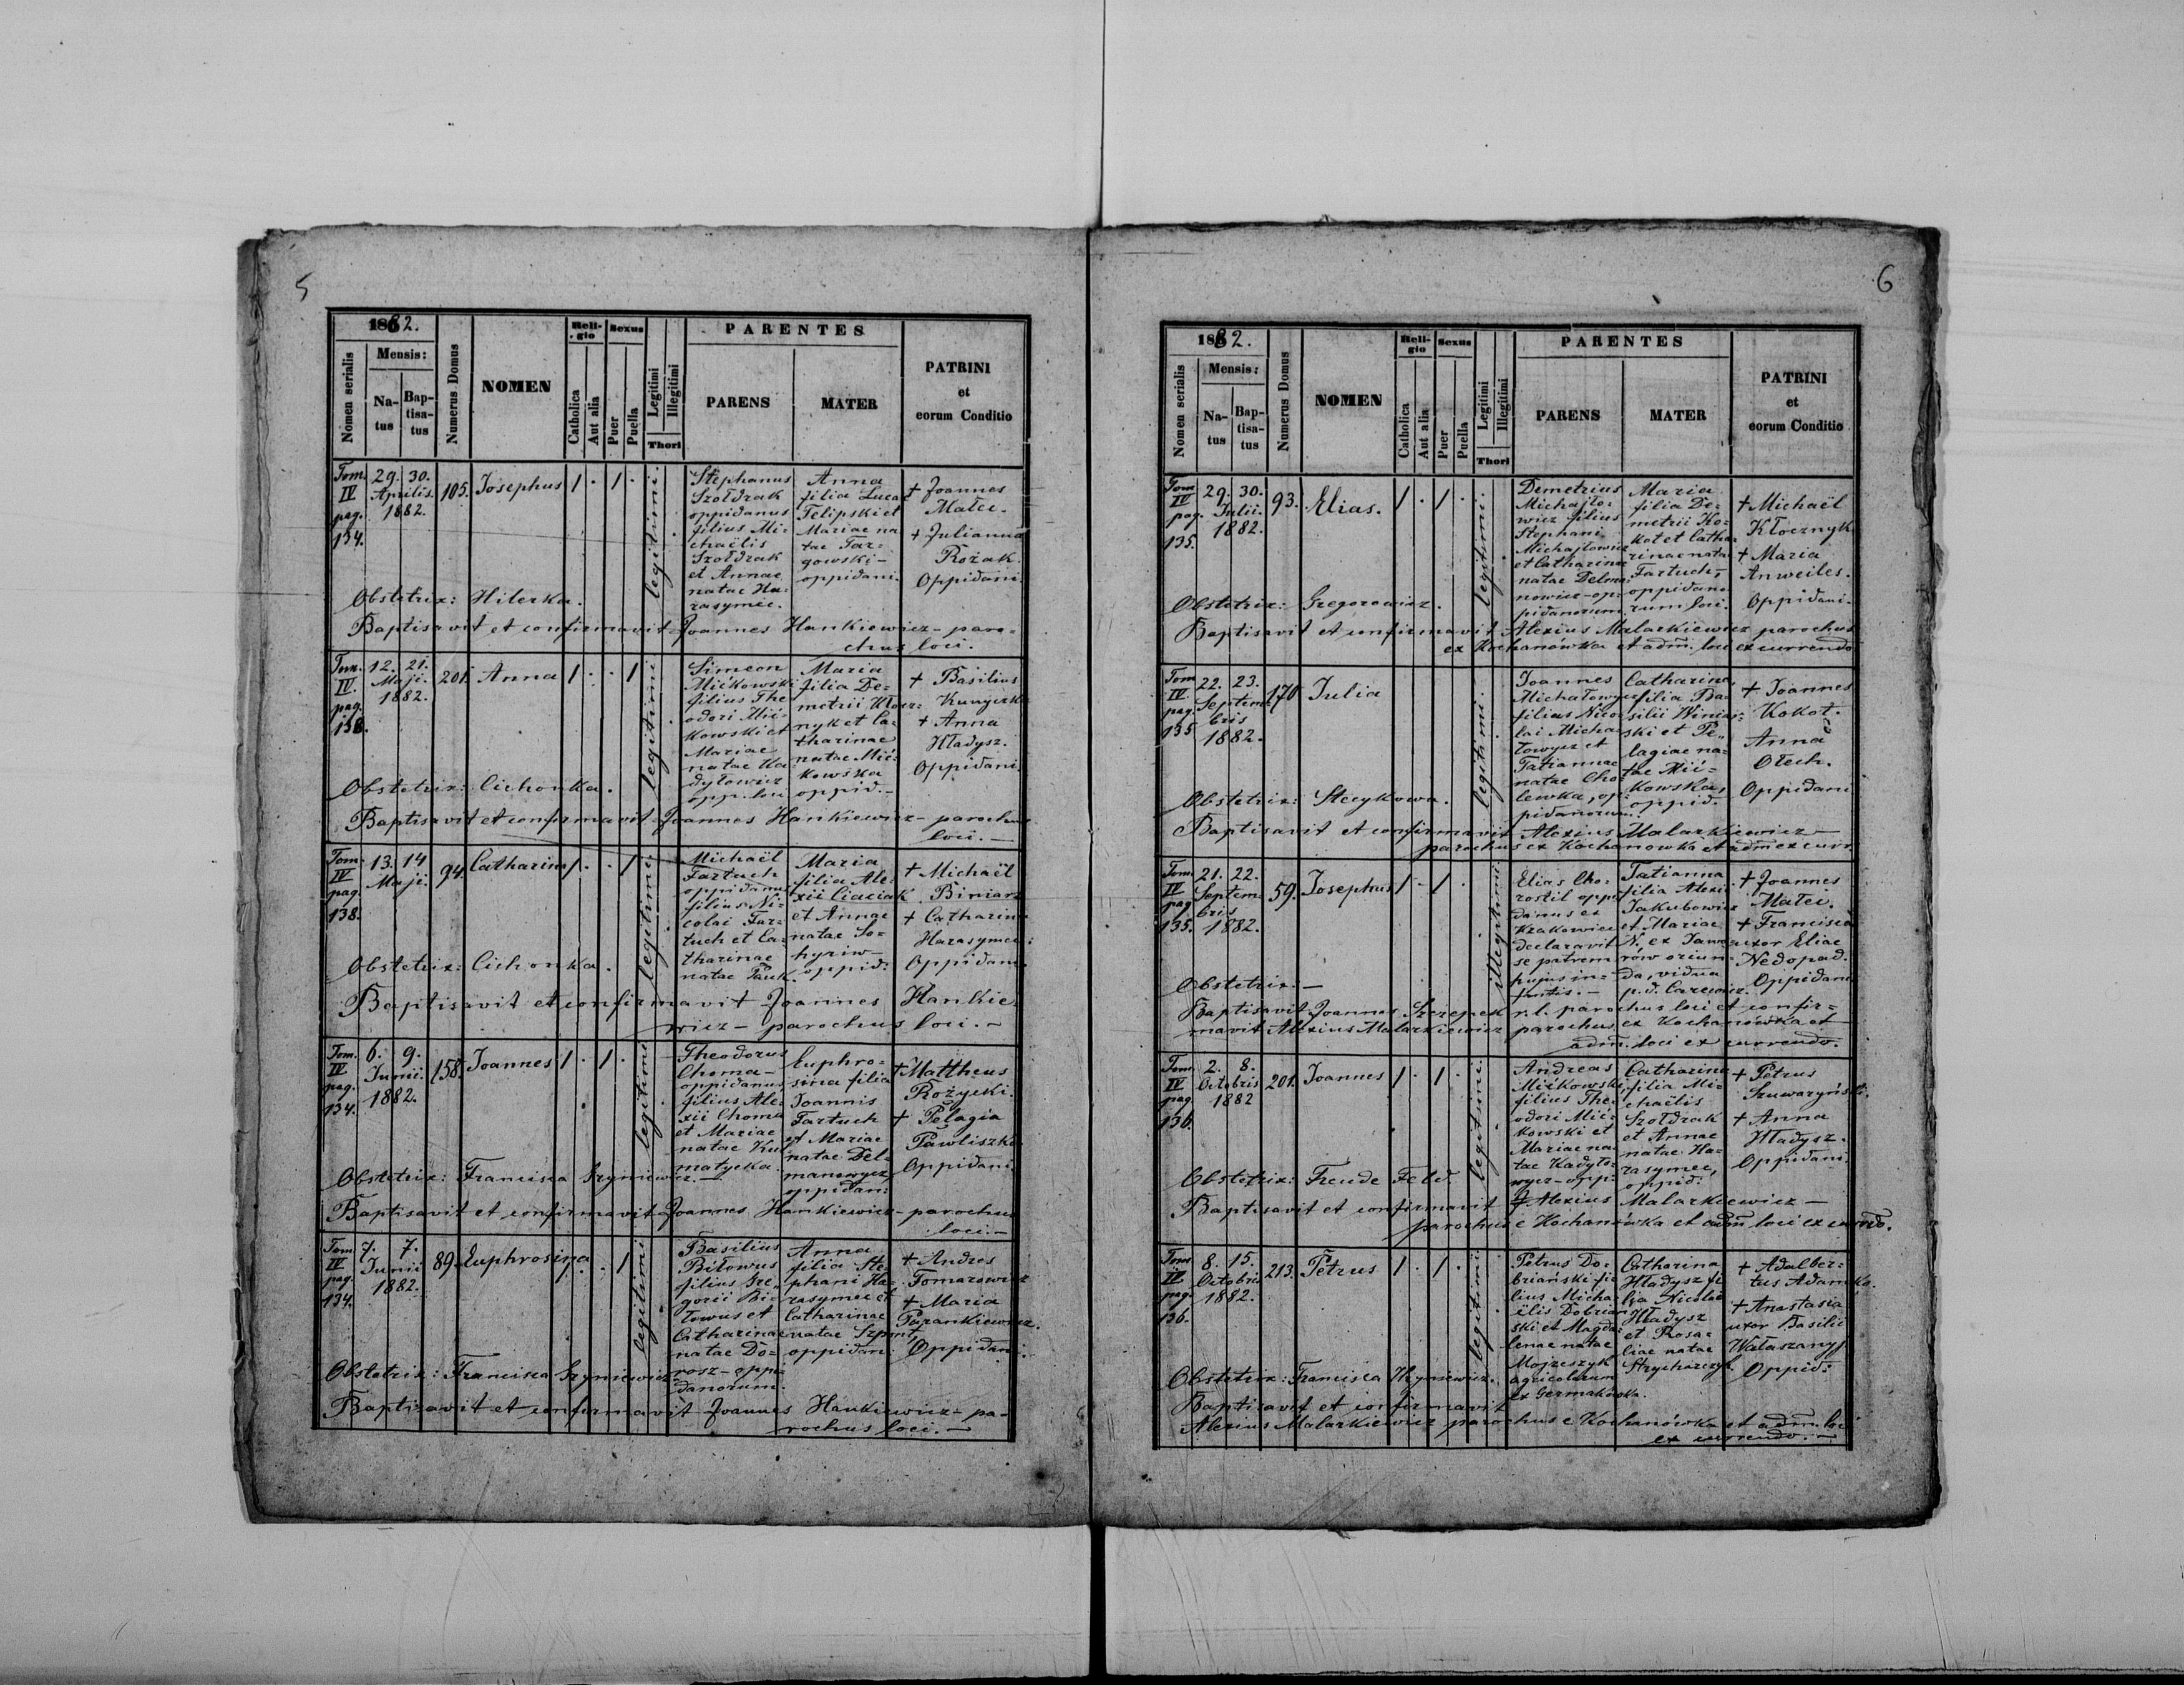 5
1882.
Nomen serialis
Mensis:
Na-
tus
Bap-
tisa-
tus
Numerus Domus
NOMEN
Reli-
gio
Catholica
Aut alia
Sexus
Puer
Puella
Legitimi
Illegitimi
Thori
PARENTES
PARENS
MATER
PATRINI
et
eorum Conditio
Tom.
IV
pag.
134.
29. 30.
Aprilis.
1882.
105.
Josephus
1 . 1 .
legitimi.
Stephanus
Szołdrak
oppidanus
filius Mi-
chaëlis
Szołdrak
et Annae
natae Ha-
rasymec.
Anna
filia Lucae
Telipski et
Mariae na
tae Tar-
gowski-
oppidani.
+ Joannes
Matei.
+ Julianna
Rożak.
Oppidani.
Obstetrix: Hilerka.
Baptisavit et confirmavit Joannes Hankiewicz - paro-
chus loci.
Tom.
IV.
pag.
138.
12. 21.
Maji.
1882.
201.
Anna
1 . . 1
legitimi
Simeon
Mićkowski
filius The
odori Mić-
kowski et
Mariae
natae Ka-
dyłowicz
opp. loci
Maria
filia De-
metrii Kłocz-
nyk et Ca-
tharinae
natae Mić-
kowska
oppid.-
+ Basilius
+ Anna
Hładysz.
Oppidani.
Obstetrix: Cichonka.
Baptisavit et confirmavit Joannes Hankiewicz - parochus
loci. -
Tom.
IV
pag.
138.
13. 14
Maji.
94.
Catharina
1 . . 1
legitimi
Michaël
Fartuch
oppidanus
filius Ni-
colai Far-
tuch et Ca-
tharinae
natae Pauk.
Maria
filia Ale-
xii Ciaciak
et Annae
natae So-
hyriw-
oppid:
+ Michaël
Biniarz
+ Catharina
Harasymec:
Oppidani.
Obstetrix: Cichonka.
Baptisavit et confirmavit Joannes Hankie-
wicz - parochus loci. -
Tom.
IV
pag.
134.
6. 9.
Junii.
1882.
158.
Joannes
1 . 1 .
legitimi
Theodorus
Choma-
oppidanus
filius Ale-
xii Choma
et Mariae
natae Kul-
matycka.
Euphro-
sina filia
Joannis
Fartuch
et Mariae
natae Del-
manowycz,
oppidan:
+ Mattheus
Rożycki.
+ Pelagia
Pawliszka
Oppidani.
Obstetrix: Francisca Hryniewicz. -
Baptisavit et confirmavit Joannes Hankiewicz - parochus
loci. -
Tom.
IV
pag.
134.
7. 7.
Junii
1882.
89.
Euphrosina
1 . . 1
legitimi
Basilius
Biłowus
filius Gre-
gorii Bi-
łowus et
Catharinae
natae Do-
rosz - oppi-
danorum.
Anna
filia Ste-
phani Ha-
rasymec et
Catharinae
natae Szpont,
oppidan:
+ Andres
Tomarowicz
+ Maria
Parankiewicz.
Oppidani.
Obstetrix: Francisca Hryniewicz
Baptisavit et confirmavit Joannes Hankiewicz - pa-
rochus loci. -
6
1882.
Nomen serialis
Mensis:
Na-
tus
Bap-
tisa-
tus
Numerus Domus
NOMEN
Reli-
gio
Catholica
Aut alia
Sexus
Puer
Puella
Legitimi
Illegitimi
Thori
PARENTES
PARENS
MATER
PATRINI
et
eorum Conditio
Tom
IV
pag.
135.
29. 30.
Julii.
1882.
93.
Elias.
1 . 1 .
legitimi.
Demetrius
Michajło-
wicz filius
Stephani
Michajłowicz
et Catharinae
natae Delma-
nowicz - op-
pidanorum.
Maria
filia De-
metrii Ko-
kot et Catha-
rinae natae
Fartuch,
oppidano
rum loci.
+ Michaël
Kłocznyk
+ Maria
Anweiles.
Oppidani.
Obstetrix: Gregorowicz.
Baptisavit et confirmavit Alexius Malarkiewicz parochus
ex Kochanówka et adm. loci ex currendo
Tom
IV.
pag.
135
22. 23.
Septem-
bris
1882.
170
Julia
legitimi.
Joannes
Michałowycz
filius Nico-
lai Micha-
łowycz et
Tatiannae
natae Cho-
lewka, op-
pidanorum.
Catharina,
filia Ba-
silii Winiar-
ski et Pe-
lagiae na-
tae Mić-
kowska,
oppid.
+ Joannes
Kokot.
Anna
Otech.
Oppidani
Obstetrix: Stecykowa.
Baptisavit et confirmavit Alexius Malarkiewicz -
parochus ex Kochanowka et adm ex curr.
Tom.
IV
pag
135.
21. 22.
Septem
bris
1882.
59.
Josephus
1 . 1 .
illegitimi
Elias Cho-
rostil oppi
danus ex
Krakowiec
declaravit
se patrem
hujus in-
fantis. -
Tatianna
filia Alexii
Jakubowicz
et Mariae
N. ex Jawo
rów oriun-
da, vidua
+ Joannes
Matei.
+ Francisca
uxor Eliae
Nedopad.
Oppidani
Obstetrix: -
Baptisavit Joannes Szczepek r. l. parochus loci et confir-
mavit Alexius Malarkiewicz parochus ex Kochanówka et
adm. loci ex currendo.
Tom.
IV
pag.
136.
2. 8.
Octobris
1882
201.
Joannes
1 . 1 .
legitimi
Andreas
Mićkowski
filius The-
odori Mić-
kowski et
Mariae na-
tae Kadyło-
wycz - opp:
Catharina
filia Mi-
chaëlis
Szołdrak
et Annae
natae Ha-
rasymec,
oppid.
+ Petrus
Szuwaryński.
+ Anna
Hładysz.
Oppidani.
Obstetrix: Freude Feld.
Baptisavit et confirmavit Alexius Malarkiewicz -
parochus e Kochanówka et adm loci ex currdo.
Tom
IV
pag.
136.
8. 15.
Octobris
1882.
213.
Petrus
1 . 1 .
legitimi
Petrus Do-
briański fi-
lius Micha-
ëlis Dobrian
ski et Magda-
lenae natae
Mojzeszyk
agricolarum
ex Germakówka.
Catharina
Hładysz fi
lia Nicolai
Hładysz
et Rosa-
liae natae
Strycharczyk.
+ Adalber-
tus Adamko.
+ Anastasia
uxor Basilii
Wałaszanyj
Oppid:
Obstetrix: Francisca Hryniewicz.
Baptisavit et confirmavit
Alexius Malarkiewicz parochus e Kochanówka et adm. loci
ex currendo. -